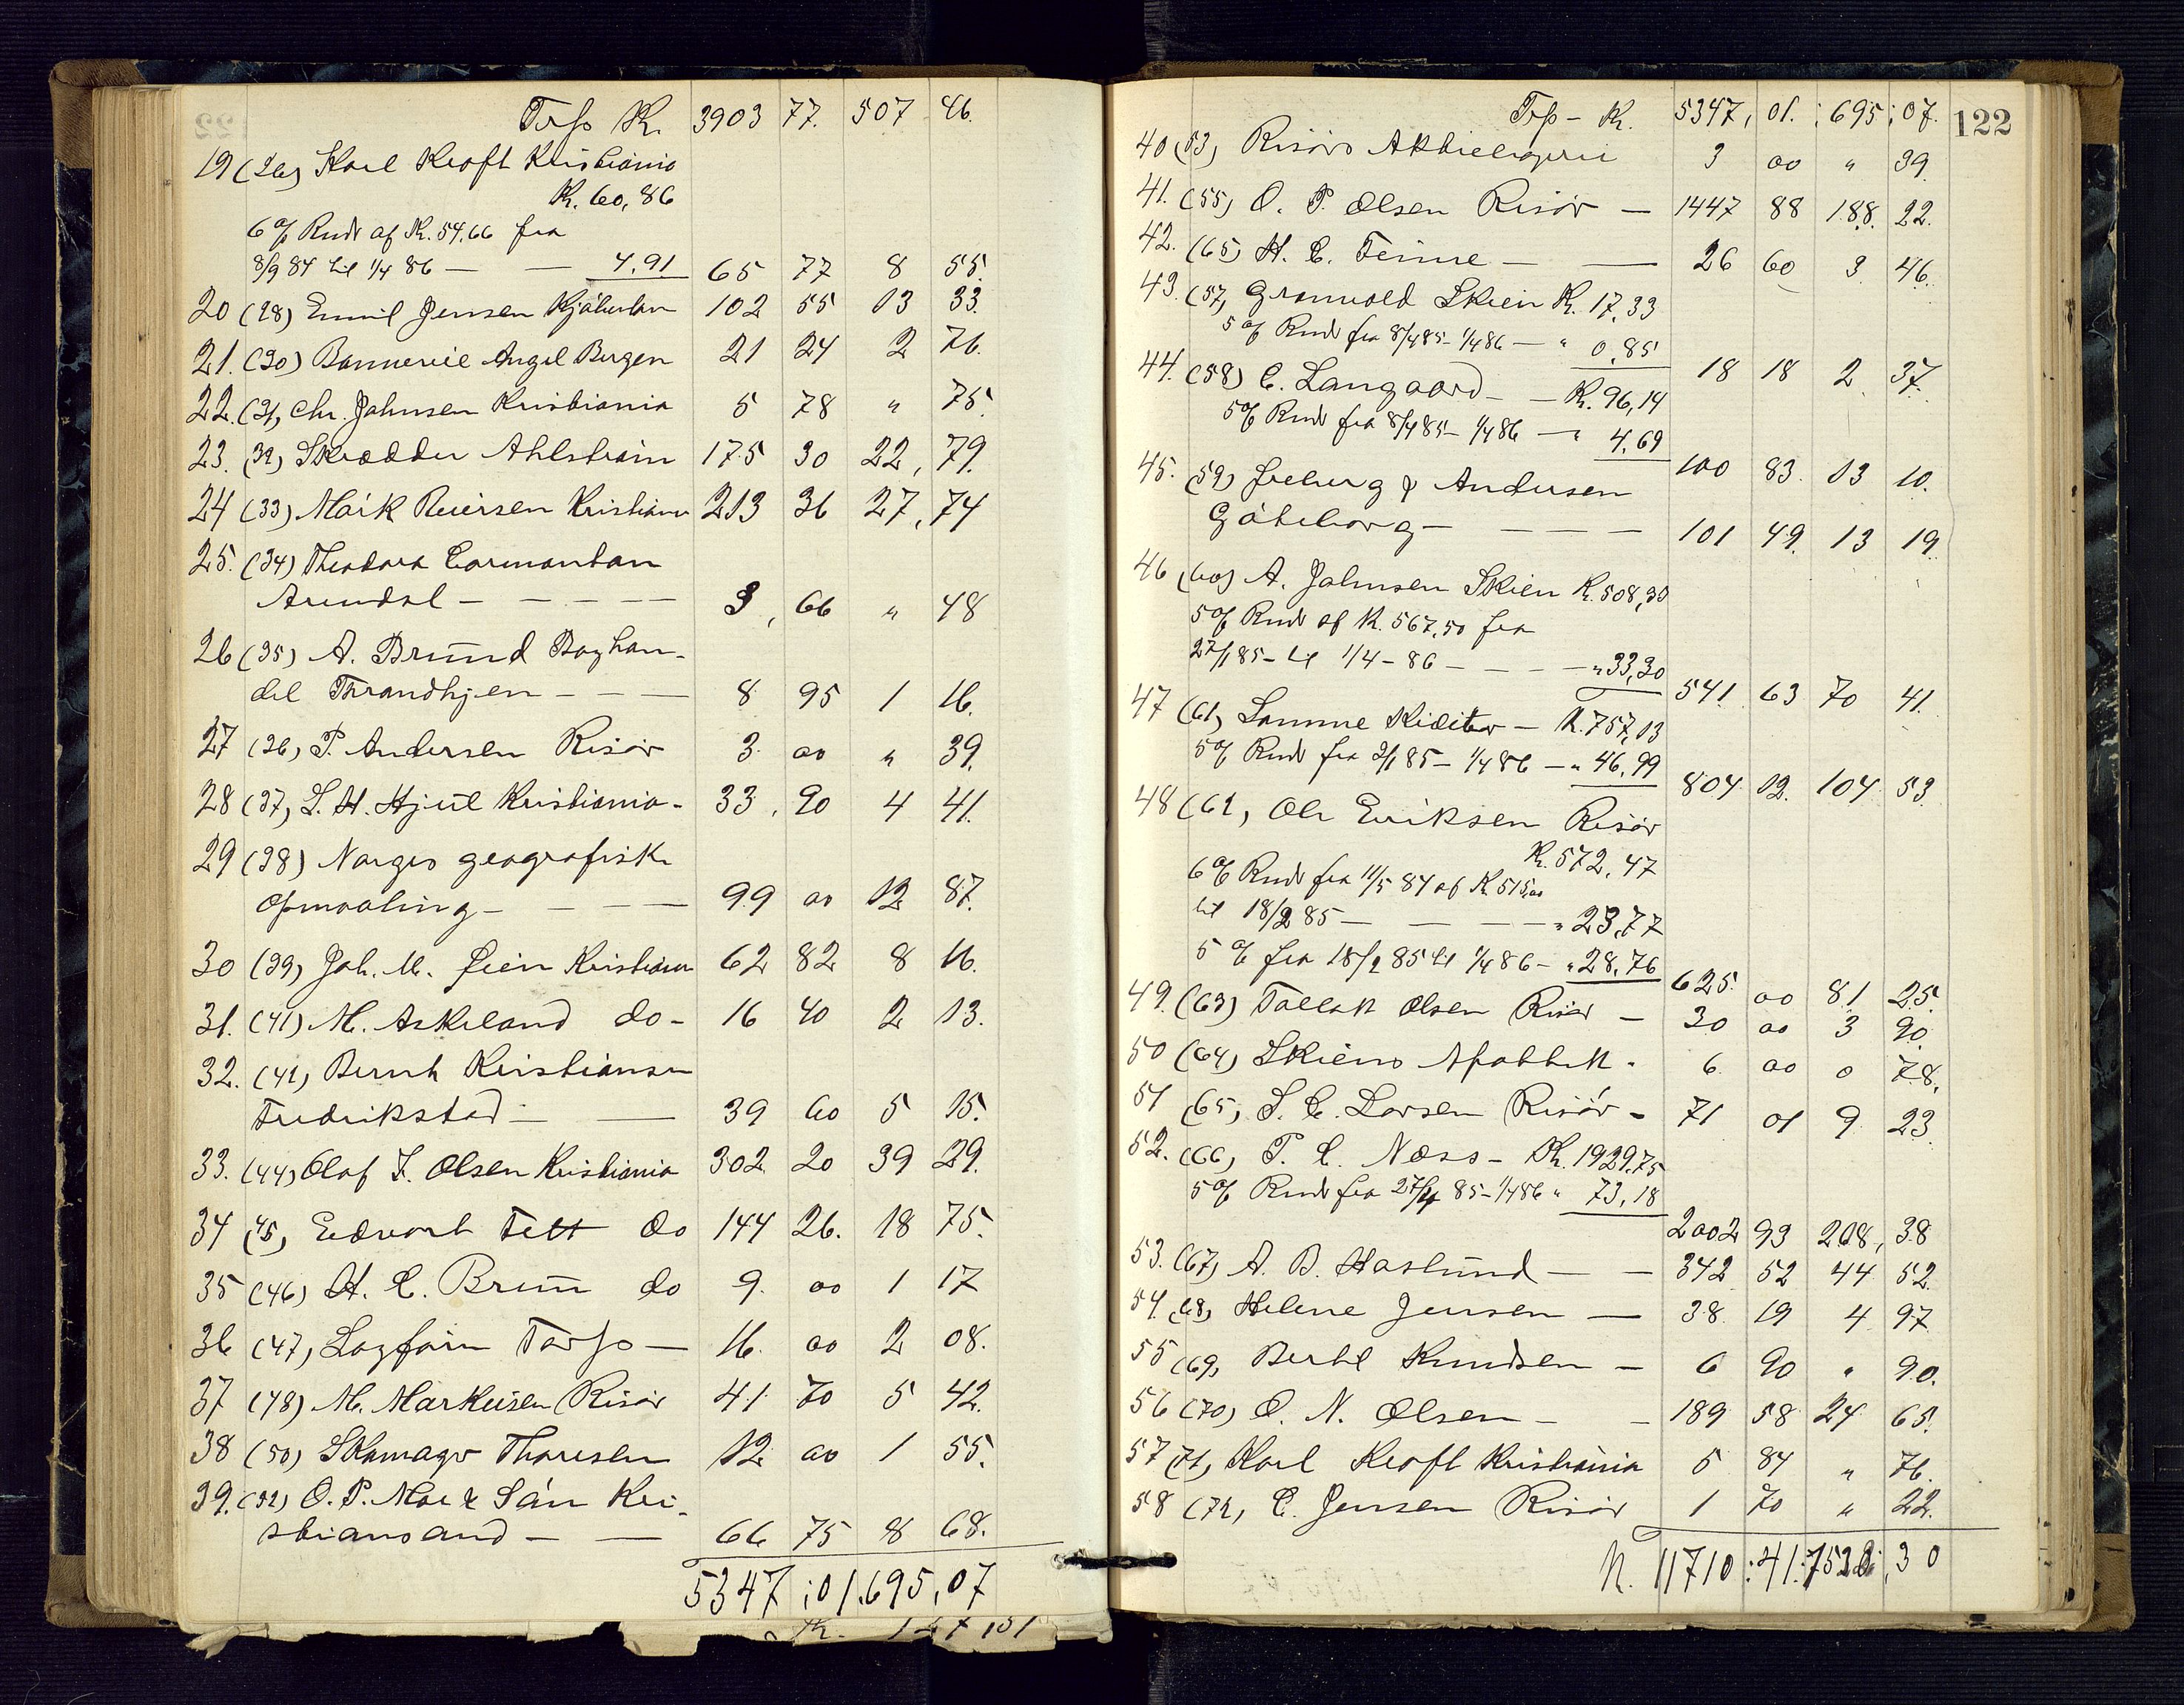 Trsp Kr. 3903 77. 507 46.
19 (26) Karl Kroft Kristiania
Kr. 60,86
6 % Rente af Kr. 54.66 fra
8/9 84 til 1/4 86 — — 4.91 65 77 8 55.
20 (28) Emil Jensen 102 55 13 33.
21. (30) Angel Bergen 21 24 2 76.
22. (31) Chr. Johnsen Kristiania 5 78 " 75.
23. (32) Skrædder Ahlstrøm 175 30 22, 79.
24 (33) Mark Reiersen Kristiania 213 36 27, 74
25. (34) Theodora Cormontan
Arendal — — — — 3, 66 " 48
26 (35) A. Brūn Boghan-
del Throndhjem — — — 8 95 1 16.
27 (36) P. Andersen Risør 3. 00 " 39.
28 (37) L. H. Hjūl Kristiania - 33, 90 4 41.
29 (38) Norges geografiske
Opmaaling — — — 99 00 12 87.
30 (39) Joh. M. Kristiania 62 82 8 16.
31. (41) M. Askeland do - 16 40 2 13.
32. (42) Bernh Kristiansen
Fredrikstad — — 39 60 5 15.
33. (44) Olaf F. Olsen Kristiania 302 20 39 29.
34 (45) Edvart Fett do 144 26. 18 75.
35 (46) H. C. Brūn do 9. 00 1 17
36 (47) Torp — 16. 00 2 08.
37 (48) M. Markusen Risør 41 70 5 42.
38 (50) Skomagr Thoresen 12 00 1 55.
39. (52) O. P. Moe & Søn Kri-
stiansand — — 66 75 8 68.
5347 ;01.695,07
Kr. 127,51
122
Trsp - Kr. 5347, 01. ; 695 ; 07.
40 (53) Risørs 3 00 " 39.
41. (55) O. P. Olsen Risør — 1447 88 188. 22.
42. (65) H. C. — — 26 60 3 46.
43. (57) Gronvold Skien Kr. 17.33
5 % Rente fra 8/4 85 - 1/4 86 — " 0.85
18 18 2 37.
44. (58) C. Langaard — — Kr. 96,14
5 % Rente fra 8/4 85 - 1/4 86 — " 4,69
100 83. 13 10.
45. (59) & Andersen
Gøteborg — — — — 101 49. 13 19.
46 (60) A. Johnsen Skien Kr. 508,33
5 % Rente af Kr. 567,50 fra
27/1 85 - til 1/4 - 86 — — — — " 33,30
541. 63 70 41.
47 (61) Samme Kreditor — Kr. 757,13
5 % Rente fra 2/1 85 - 1/4 86 — " 46,99
804 12. 104 53.
48 (62) Ole Eriksen Risør
Kr. 572,47
6 % Rente fra 11/5 84 af Kr 515,00
til 18/2 85 — — — — " 23,77
5 % fra 18/2 85 til 1/4 86 - " 28,76
625. 00 81 25.
49. (63) Tallak Olsen Risør — 30 00 3 90.
50 (64) Skiens Apothek . 6 00 0 78,
51 (65) S. C. Larsen Risør - 71 01 9 23
52. (66) P. C. Næss - Kr. 1929.75
5 % Rente fra 27/4 85 - 1/4 86 " 73,18
2002 93 208, 38
53. (67) A. B. Haslūnd — — 342 52 44 52
54. (68) Helene Jensen — 38. 19 4 97
55 (69) Bertel Knudsen — 6 90 " 90.
56 (70) O. N. Olsen — — 189 58 24 65.
57 (71) Karl Kroft Kristiania 5 84 " 76.
58 (72) C. Jensen Risør 1 70 " 22.
Kr. 11710 :41: 1522; 30